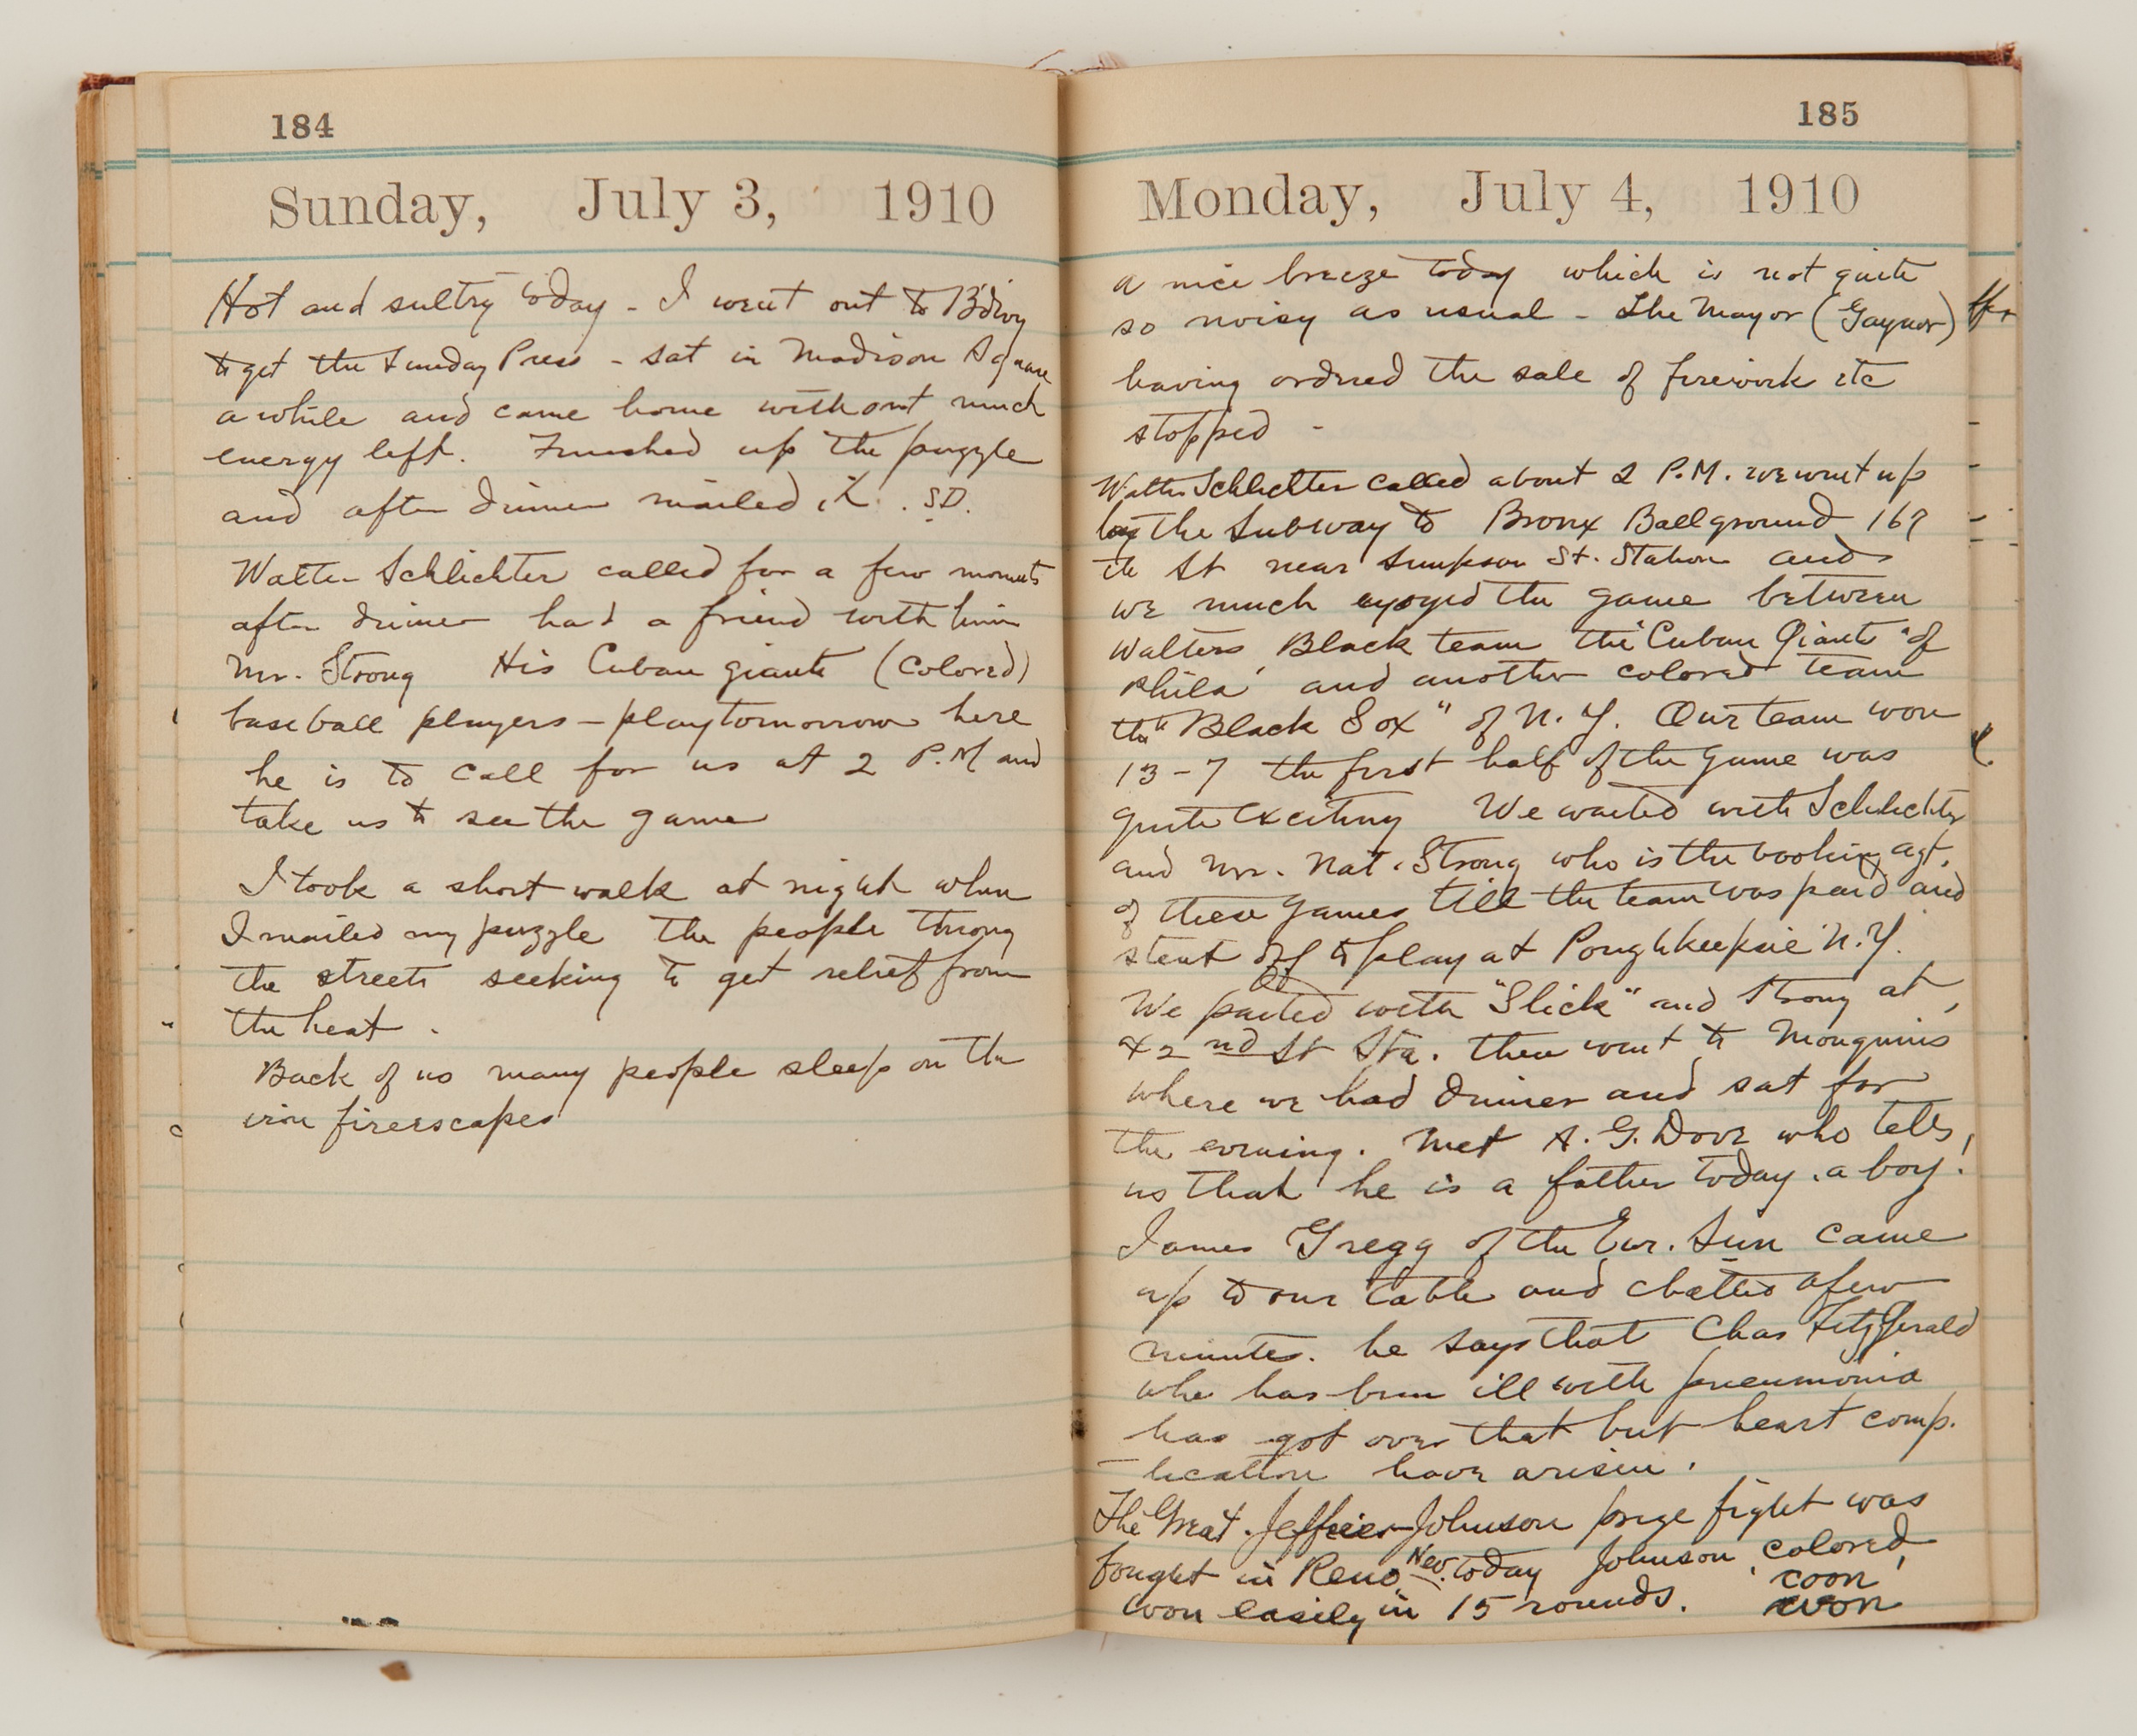 184
Sunday, July 3, 1910
Hot and sultry today - I went out to B'dwy
to get the Sunday Press - sat in Madison Square
a while and came home without much
energy left. Finished up the puzzle
and after dinner mailed it. SD.
Walter Schlichter called for a few moments
after dinner had a friend with him
Mr. Strong His Cuban giants (Colored)
baseball players - play tomorrow here
he is to call for us at 2 P.M and
take us to see the game
I took a short walk at night when
I mailed my puzzle The people throng
the streets seeking to get relief from
the heat.
Back of us many people sleep on the
iron fireescapes
185
Monday, July 4, 1910
a nice breeze today which is not quite
so noisy as usual - The Mayor (Gaynor)
having ordered the sale of firework etc
stopped -
Walter Schlichter called about 2 P.M. we went up
by the Subway to Bronx Ball ground 167
th St near Simpson St. Station and
we much enjoyed the game between
Walters Black team the "Cuban Giants" of
Phila and another colored team
the "Black Sox" of N.Y. Our team won
13-7 the first half of the game was
quite exciting We waited with Schlichter
and Mr. Nat. Strong who is the booking agt.
of these games till the team was paid and
sent off to play at Poughkeepsie N.Y.
We parted with "Slick" and Strong at
42nd St Sta. then went to Mouquins
where we had dinner and sat for
the evening. Met A.G. Dove who tells
us that he is a father today. a boy!
James Gregg of the Eve. Sun came
up to our table and chatted a few
minutes. he says that Chas Fitzgerald
who has been ill with pneumonia
has got over that but heart comp-
lication have arisen.
The Great Jeffries-Johnson prize fight was
fought in Reno Nev. today Johnson, colored,
won easily in 15 rounds. coon
won